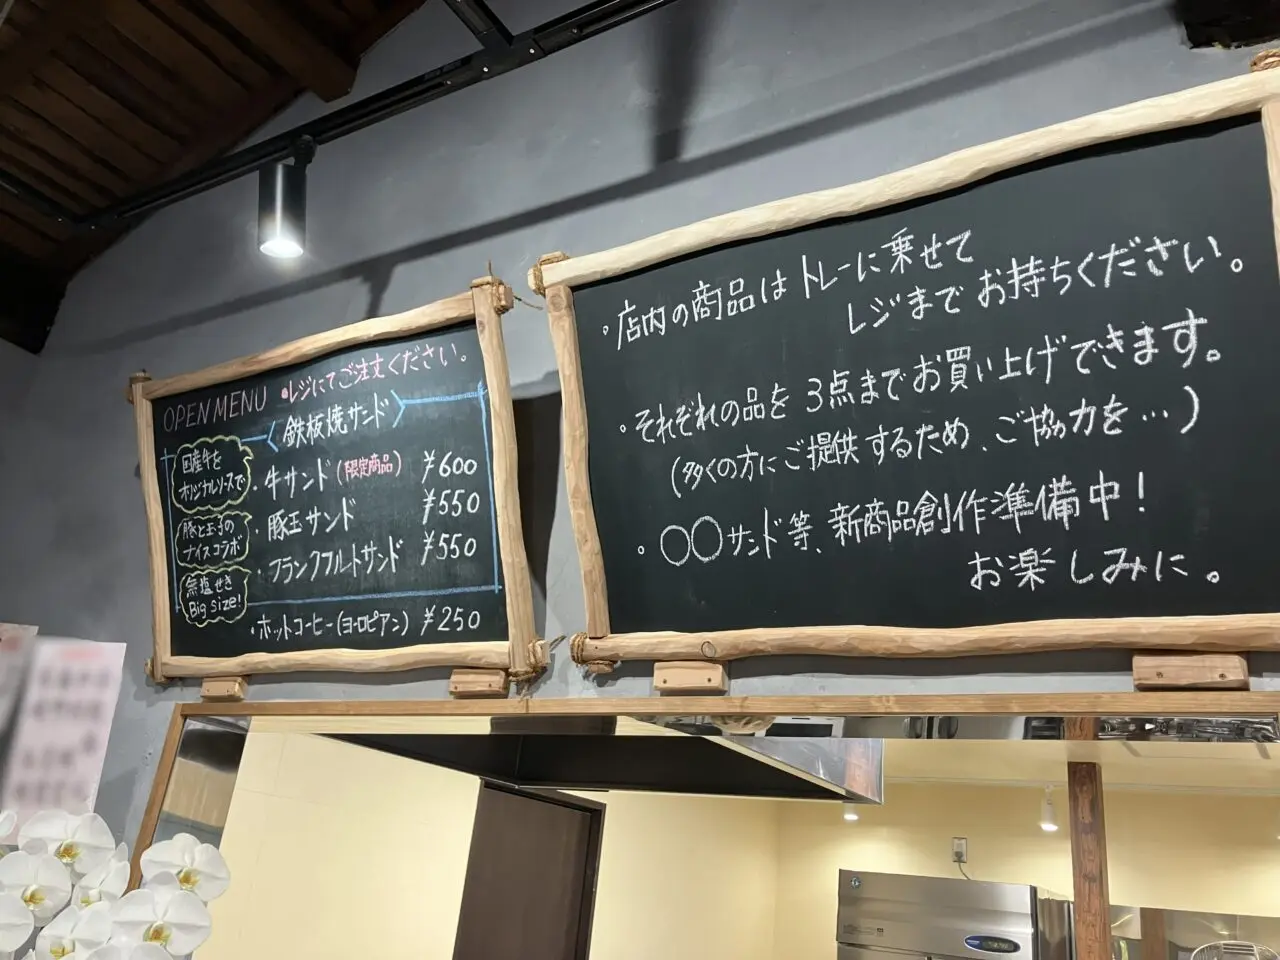 OPEN MENU ・レジにてご注文ください。
鉄板焼サンド
国産牛を
オリジナルソースで
・牛サンド(限定商品) ¥600
豚と玉子の
ナイスコラボ
・豚玉サンド ¥550
無塩せき
Big size!
・フランクフルトサンド ¥550
・ホットコーヒー(ヨーロピアン) ¥250
・店内の商品はトレーに乗せて
レジまでお持ちください。
・それぞれの品を3点までお買い上げできます。
(多くの方にご提供するため、ご協力を…)
・〇〇サンド等、新商品創作準備中!
お楽しみに。